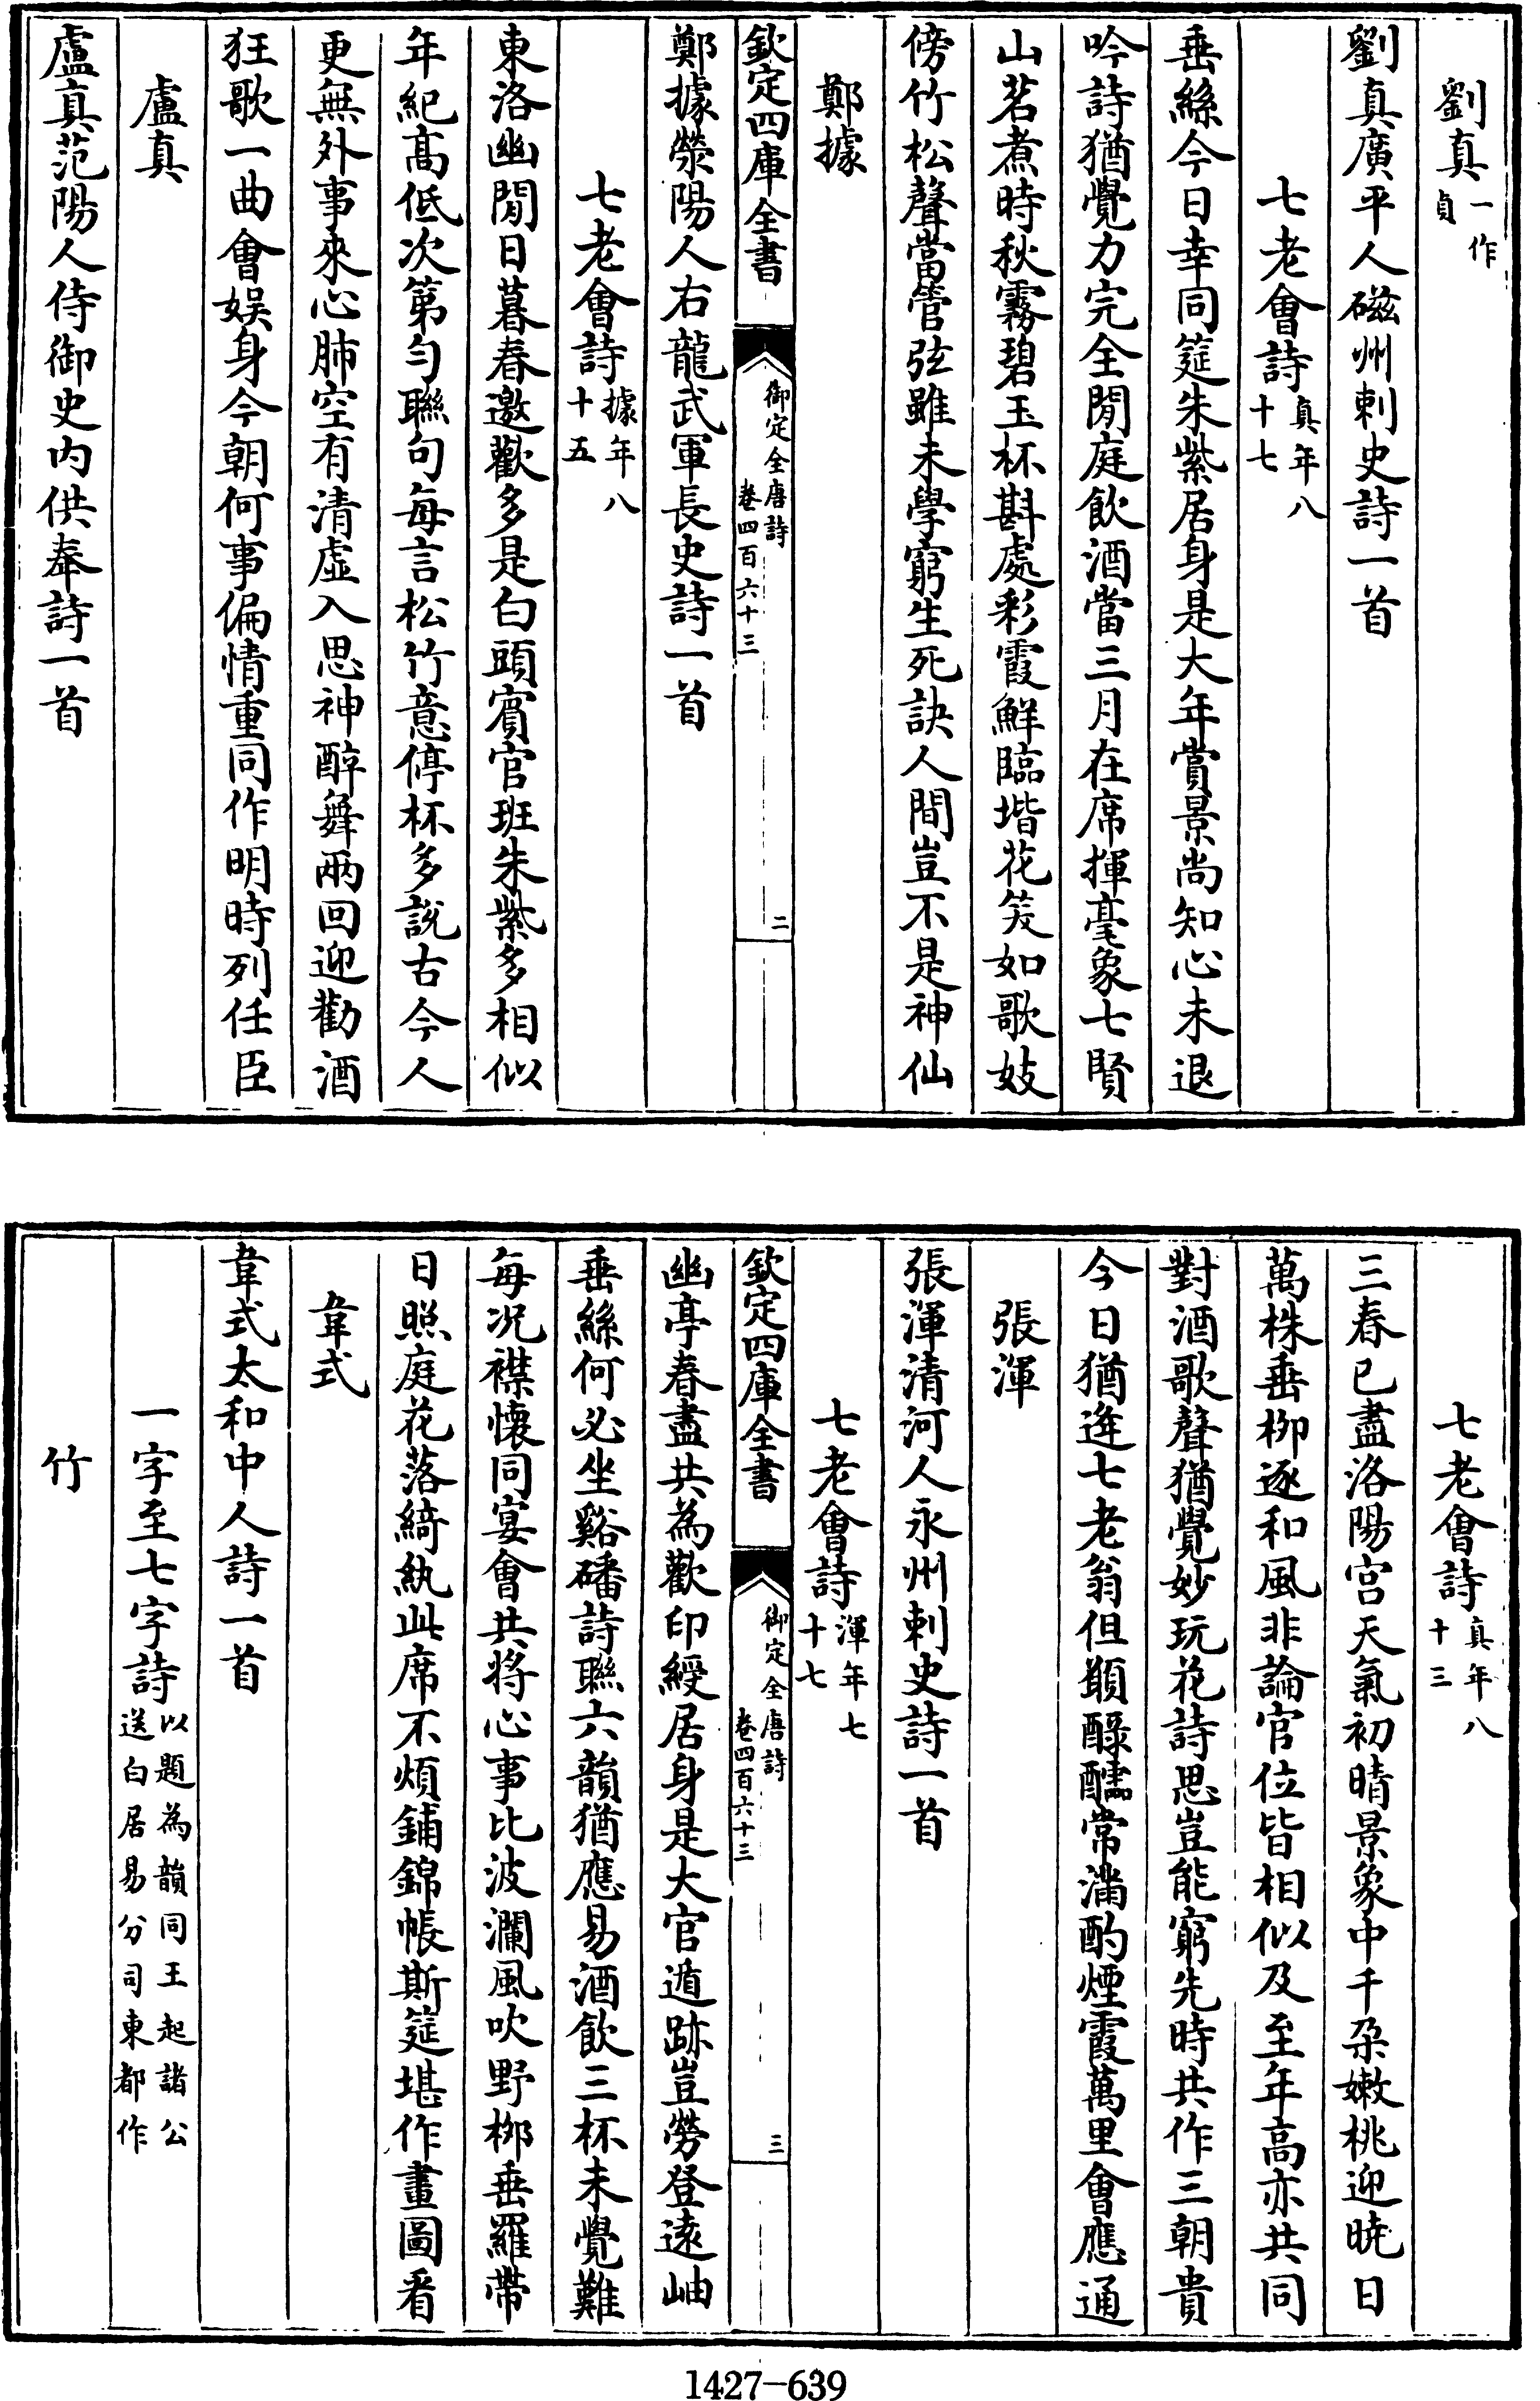 劉真一作貞
劉真廣平人磁州刺史詩一首
七老會詩真年八十七
垂絲今日幸同筵朱紫居身是大年賞景尚知心未退
吟詩猶覺力完全閒庭飲酒當三月在席揮毫象七賢
山茗煮時秋霧碧玉杯斟處彩霞鮮臨堦花笑如歌妓
傍竹松聲當管弦雖未學窮生死訣人間豈不是神仙
鄭據
欽定四庫全書
御定全唐詩
卷四百六十三
二
鄭據滎陽人右龍武軍長史詩一首
七老會詩據年八十五
東洛幽閒日暮春邀歡多是白頭賓官班朱紫多相似
年紀高低次第勻聯句每言松竹意停杯多說古今人
更無外事來心肺空有清虛入思神醉舞兩回迎勸酒
狂歌一曲會娛身今朝何事偏情重同作明時列任臣
盧真
盧真范陽人侍御史內供奉詩一首
七老會詩真年八十三
三春已盡洛陽宮天氣初晴景象中千朶嫩桃迎曉日
萬株垂柳逐和風非論官位皆相似及至年高亦共同
對酒歌聲猶覺妙玩花詩思豈能窮先時共作三朝貴
今日猶逢七老翁但願醁醽常滿酌煙霞萬里會應通
張渾
張渾清河人永州刺史詩一首
七老會詩渾年七十七
欽定四庫全書
御定全唐詩
卷四百六十三
三
幽亭春盡共為歡印綬居身是大官遁跡豈勞登遠岫
垂絲何必坐谿磻詩聯六韻猶應易酒飲三杯未覺難
每況襟懷同宴會共將心事比波瀾風吹野柳垂羅帶
日照庭花落綺紈此席不煩鋪錦帳斯筵堪作畫圖看
韋式
韋式太和中人詩一首
一字至七字詩以題為韻同王起諸公送白居易分司東都作
竹
1427-639